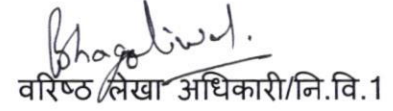 Bhagaliwal.
वरिष्ठ लेखा अधिकारी/नि.वि.1